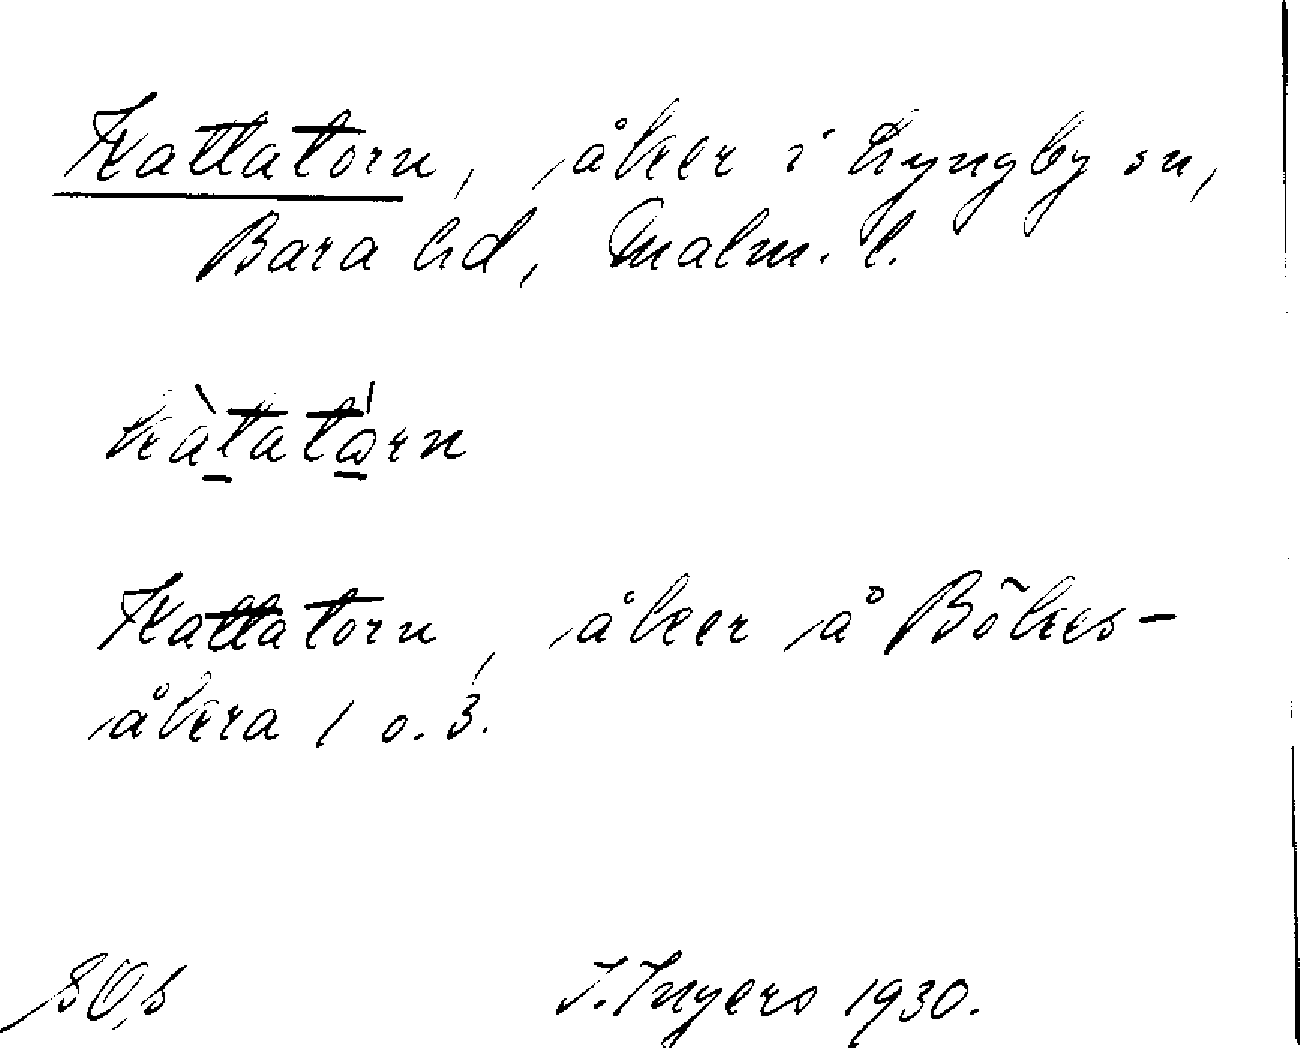 Kattatorn, åker i Lyngby sn,
Bara hd, Malm. l.
kàtatǻrn
Kattatorn, åker å Bökes-
åkra 1 o. 3.
I. Ingers 1930.